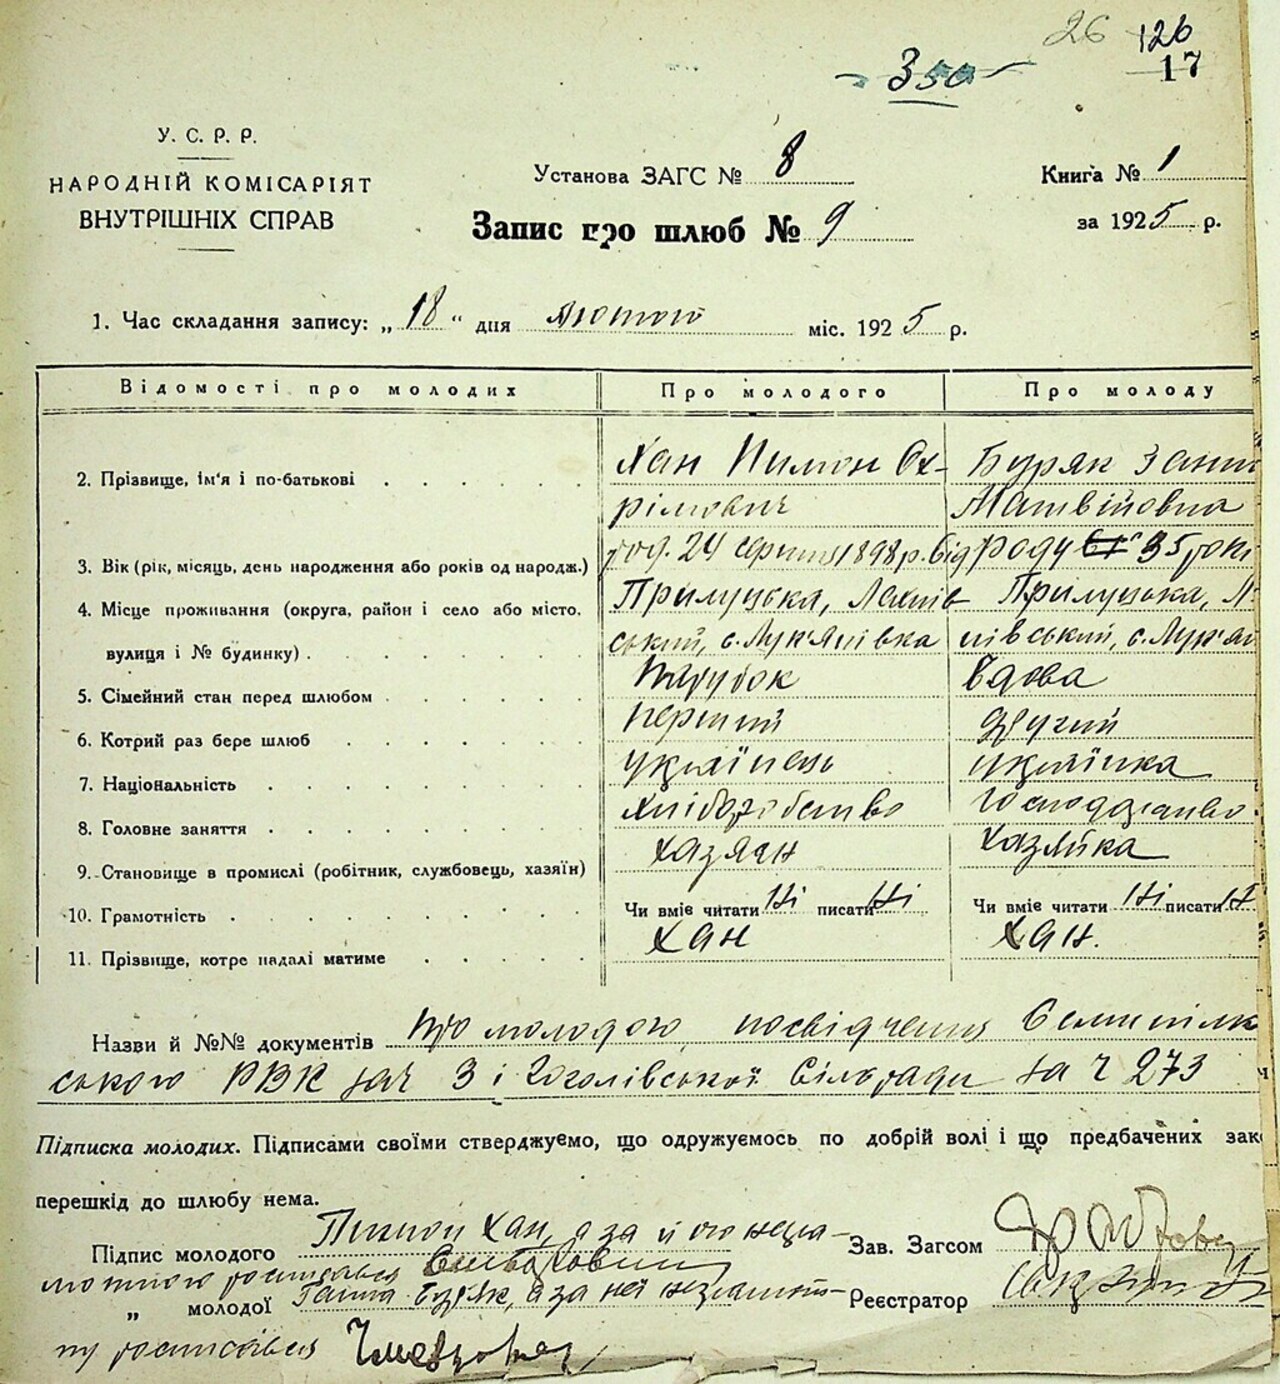 26 126
350 17
У. С. Р. Р.
НАРОДНІЙ КОМІСАРІЯТ
ВНУТРІШНІХ СПРАВ
Установа ЗАГС № 8
Книга № 1
Запис про шлюб № 9
за 1925 р.
1. Час складання запису: „18“ дня лютого міс. 1925 р.
Відомості про молодих Про молодого Про молоду
2. Прізвище, ім'я і по-батькові Хан Пимон Ох- Буряк
рімович Матвійовна
3. Вік (рік, місяць, день народження або років од народж.) род. 24 серпня 1898 р. від роду 35 років
4. Місце проживання (округа, район і село або місто, Прилуцька, Яготин Прилуцька,
вулиця і № будинку) ський, с. Лук'янівка нівський, с. Лук'ян
5. Сімейний стан перед шлюбом Парубок Вдова
6. Котрий раз бере шлюб перший другий
7. Національність українець українка
8. Головне заняття хліборобство господарство
9. Становище в промислі (робітник, службовець, хазяїн) хазяїн хазяйка
10. Грамотність Чи вміє читати Ні писати Ні Чи вміє читати Ні писати Ні
11. Прізвище, котре надалі матиме Хан Хан.
Назви й №№ документів Про молодого, посвідчення Семипілк
ського РВК за ч 3 і Гоголівської Сільради за ч 273
Підписка молодих. Підписами своїми стверджуємо, що одружуємось по добрій волі і що предбачених зак
перешкід до шлюбу нема.
Підпис молодого Пимон Хан, а за його негра-
мотного росписався
Зав. Загсом
„ молодої Ганна Буряк, а за неї неграмот-
Реєстратор
ну росписався